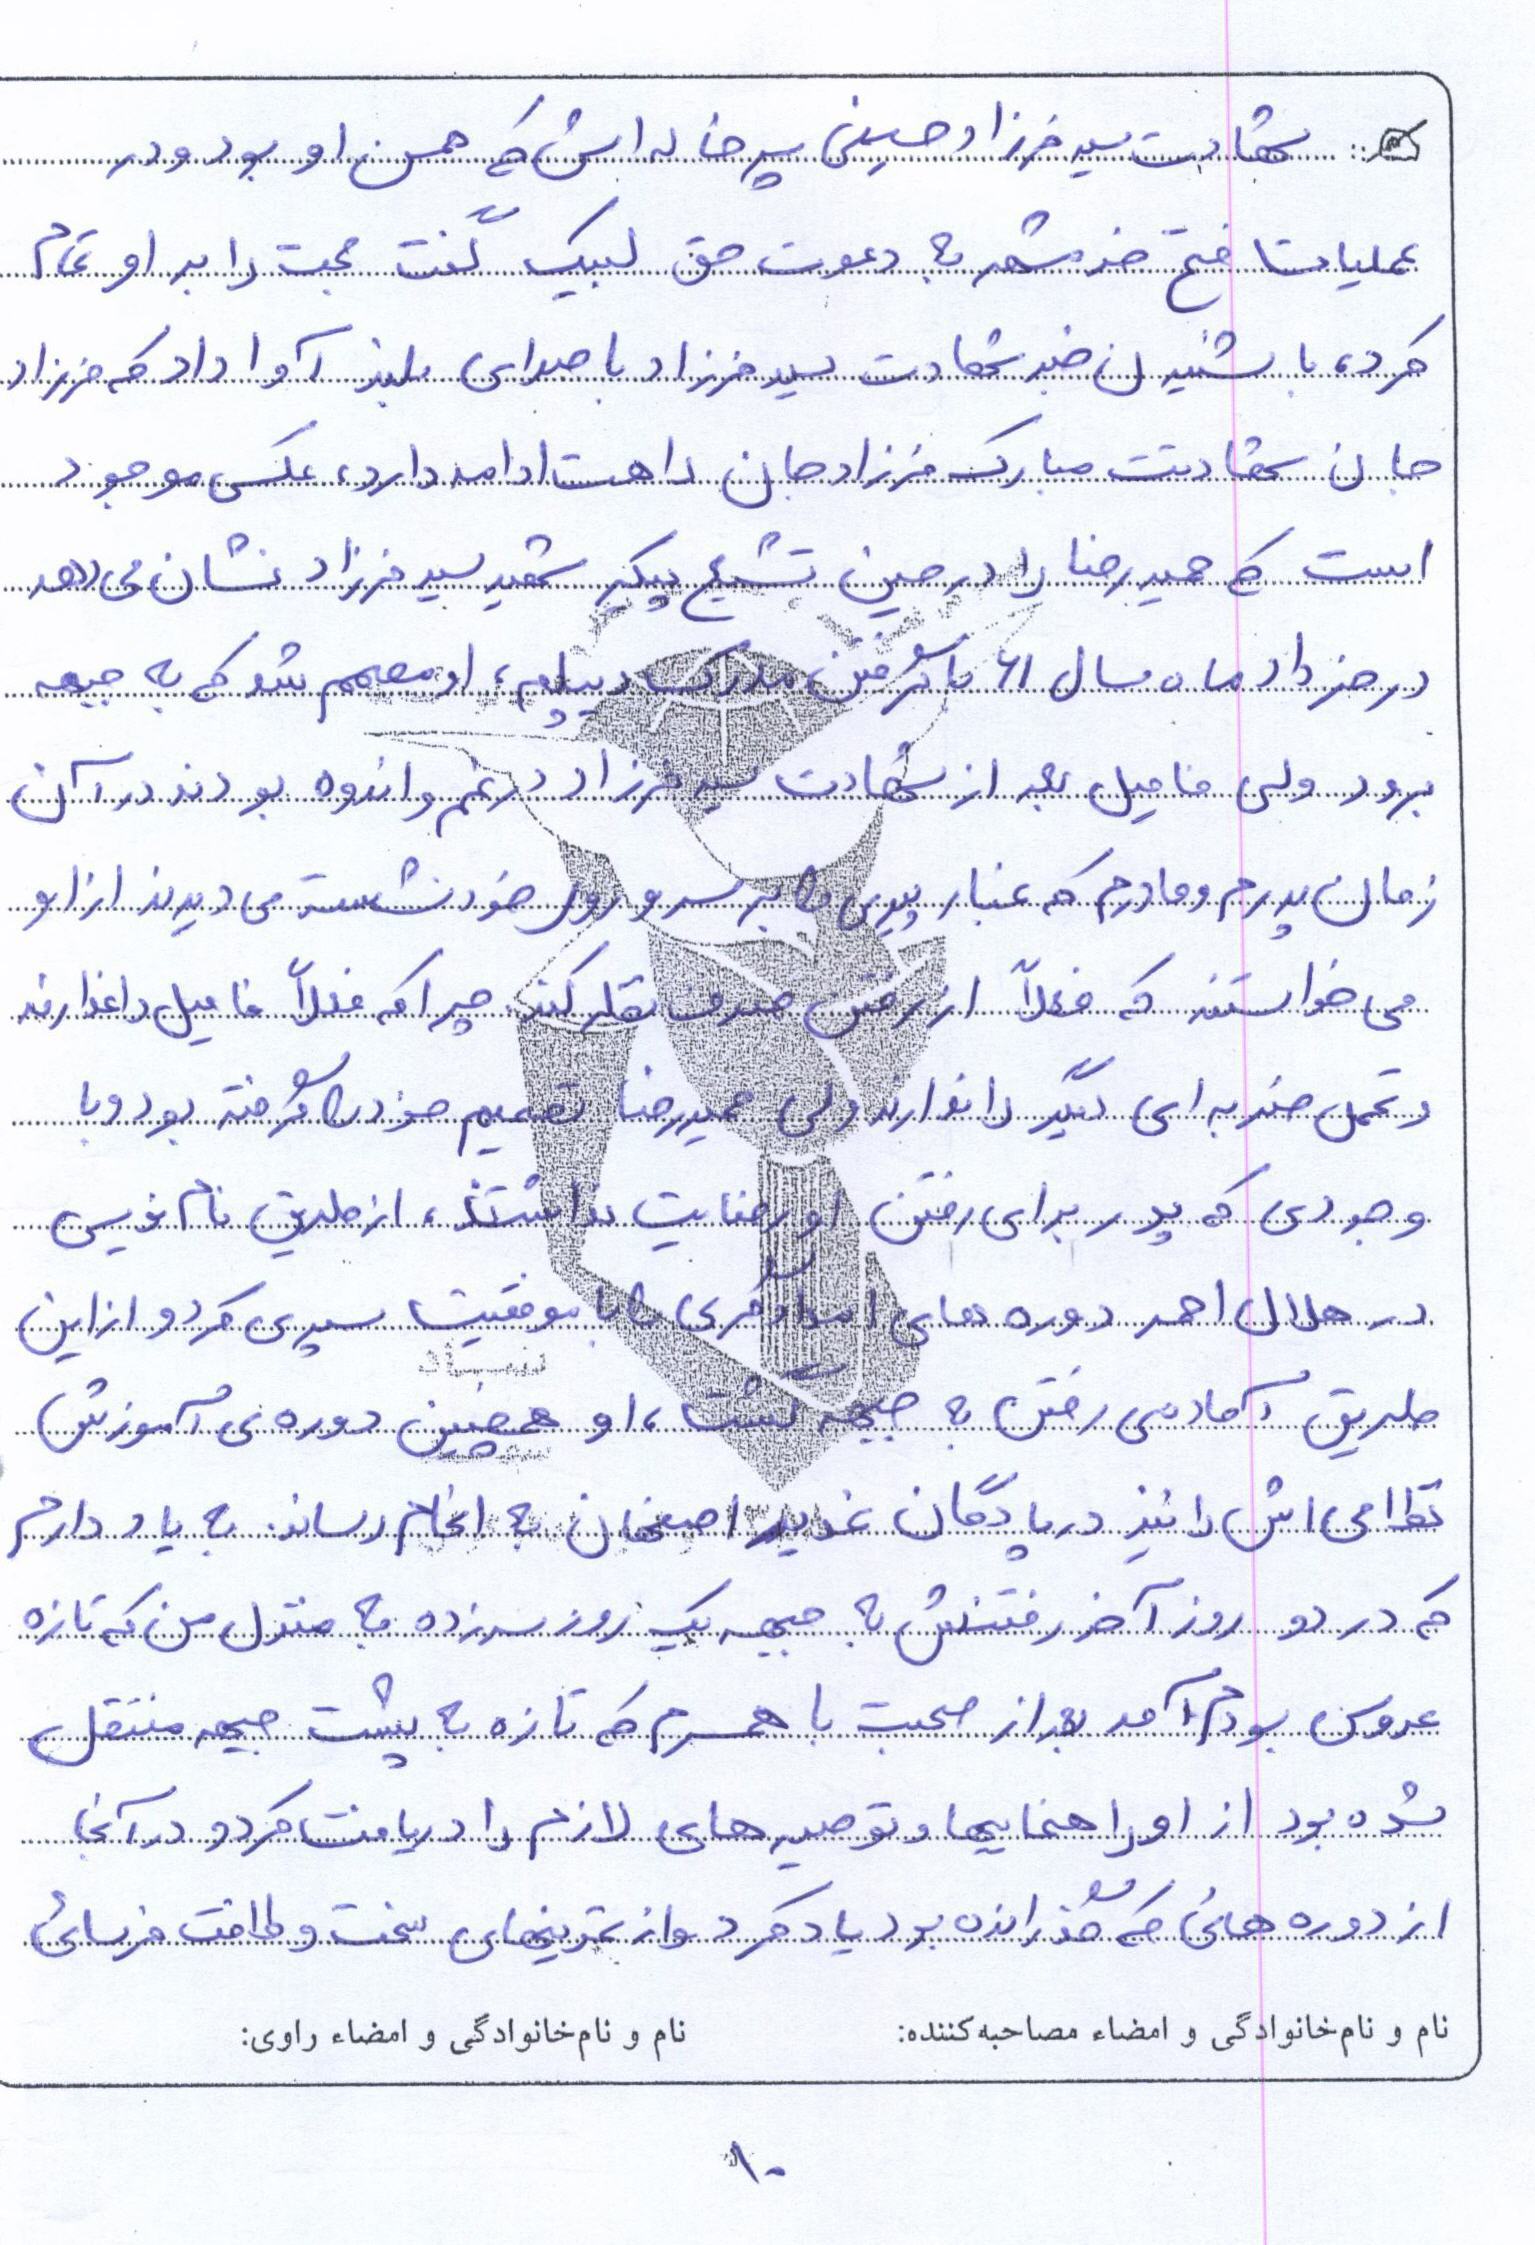 شهادت سید فرزاد حسینی پسر خاله اش که همسن او بود و در
عملیات فتح خرمشهر به دعوت حق لبیک گفت حجت را بر او تمام
کرد، با شنیدن خبر شهادت سید فرزاد با صدای بلند آوا داد که فرزاد
جان شهادتت مبارک فرزاد جان راهت ادامه دارد، عکسی موجود
است که حمیدرضا را در حین تشییع پیکر شهید سید فرزاد نشان می دهد
در خرداد ماه سال ۶۱ با گرفتن مدرک دیپلم، او مصمم شد که به جبهه
برود ولی فامیل بعد از شهادت سید فرزاد در غم و اندوه بودند در آن
زمان پدرم و مادرم که غبار پیری را بر سر و روی خود نشسته می دیدند از او
می خواستند که فعلاً از رفتن صرف نظر کند چرا که فعلاً فامیل داغدارند
و تحمل ضربه ای دیگر را ندارند ولی حمیدرضا تصمیم خود را گرفته بود و با
وجودی که پدر برای رفتن او رضایت نداشتند، از طریق نام نویسی
در هلال احمر دوره های امدادگری را با موفقیت سپری کرد و از این
طریق آماده ی رفتن به جبهه گشت، او همچنین دوره ی آموزش
نظامی اش را نیز در پادگان غدیر اصفهان به انجام رساند. به یاد دارم
که در دو روز آخر رفتنش به جبهه یک روز سرزده به منزل من که تازه
عروس بودم آمد بعد از صحبت با همسرم که تازه به پشت جبهه منتقل
شده بود از او راهنماییها و توصیه های لازم را دریافت کرد و در آنجا
از دوره هائی که گذرانده بود یاد کرد و از تمرینهای سخت و طاقت فرسائی
نام و نام‌خانوادگی و امضاء مصاحبه‌کننده:
نام و نام‌خانوادگی و امضاء راوی:
۱۰